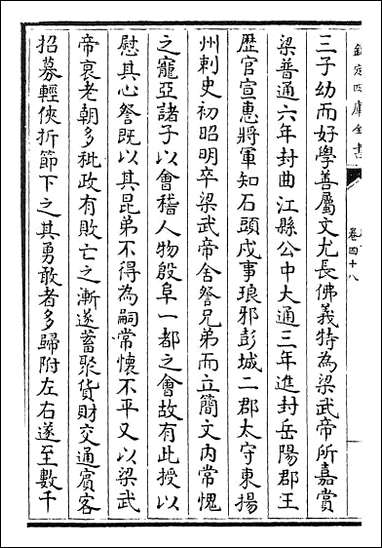 欽定四庫全書
卷四十八
三子幼而好學善屬文尤長佛義特為梁武帝所嘉賞
梁普通六年封曲江縣公中大通三年進封岳陽郡王
歴官宣惠將軍知石頭戍事琅邪彭城二郡太守東揚
州刺史初昭明卒梁武帝舍詧兄弟而立簡文内常愧
之寵亞諸子以會稽人物殷阜一都之會故有此授以
慰其心詧既以其昆弟不得為嗣常懷不平又以梁武
帝衰老朝多秕政有敗亡之漸遂蓄聚貨財交通賓客
招募輕俠折節下之其勇敢者多歸附左右遂至數千